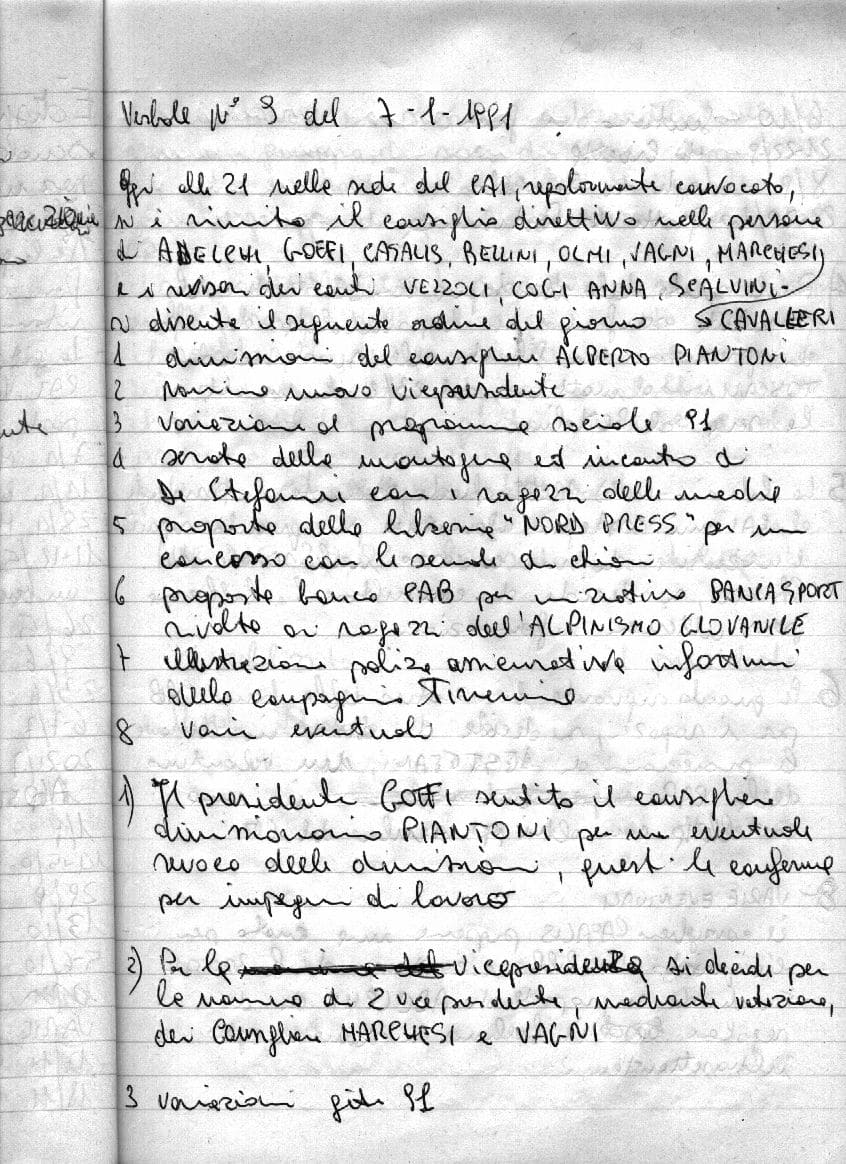 Verbale N° 9 del 7-1-1991
Oggi alle 21 nella sede del CAI, regolarmente convocato,
si è riunito il consiglio direttivo nelle persone
di ADELCHI, GOFFI, CASALIS, BELLINI, OLMI, VAGNI, MARCHESI,
e i revisori dei conti VEZZOLI, COGI ANNA, SCALVINI-
si discute il seguente ordine del giorno CAVALLERI
1 dimissioni del consigliere ALBERTO PIANTONI
2 nomina nuovo vicepresidente
3 variazioni al programma sociale 91
4 serate della montagna ed incontro di
De Stefani con i ragazzi delle medie
5 proposta della libreria "NORD PRESS" per un
concorso con le scuole di chiari
6 proposta banca CAB per iniziativa BANCASPORT
rivolta ai ragazzi dell'ALPINISMO GIOVANILE
7 illustrazione polizza assicurativa infortuni
della compagnia Tirrenia
8 varie eventuali
1) Il presidente GOFFI sentito il consigliere
dimissionario PIANTONI per una eventuale
revoca delle dimissioni, quest. le conferma
per impegni di lavoro
2) Per la vicepresidenza si decide per
la nomina di 2 vice presidente, mediante votazione,
dei Consiglieri MARCHESI e VAGNI
3 variazioni gite 91